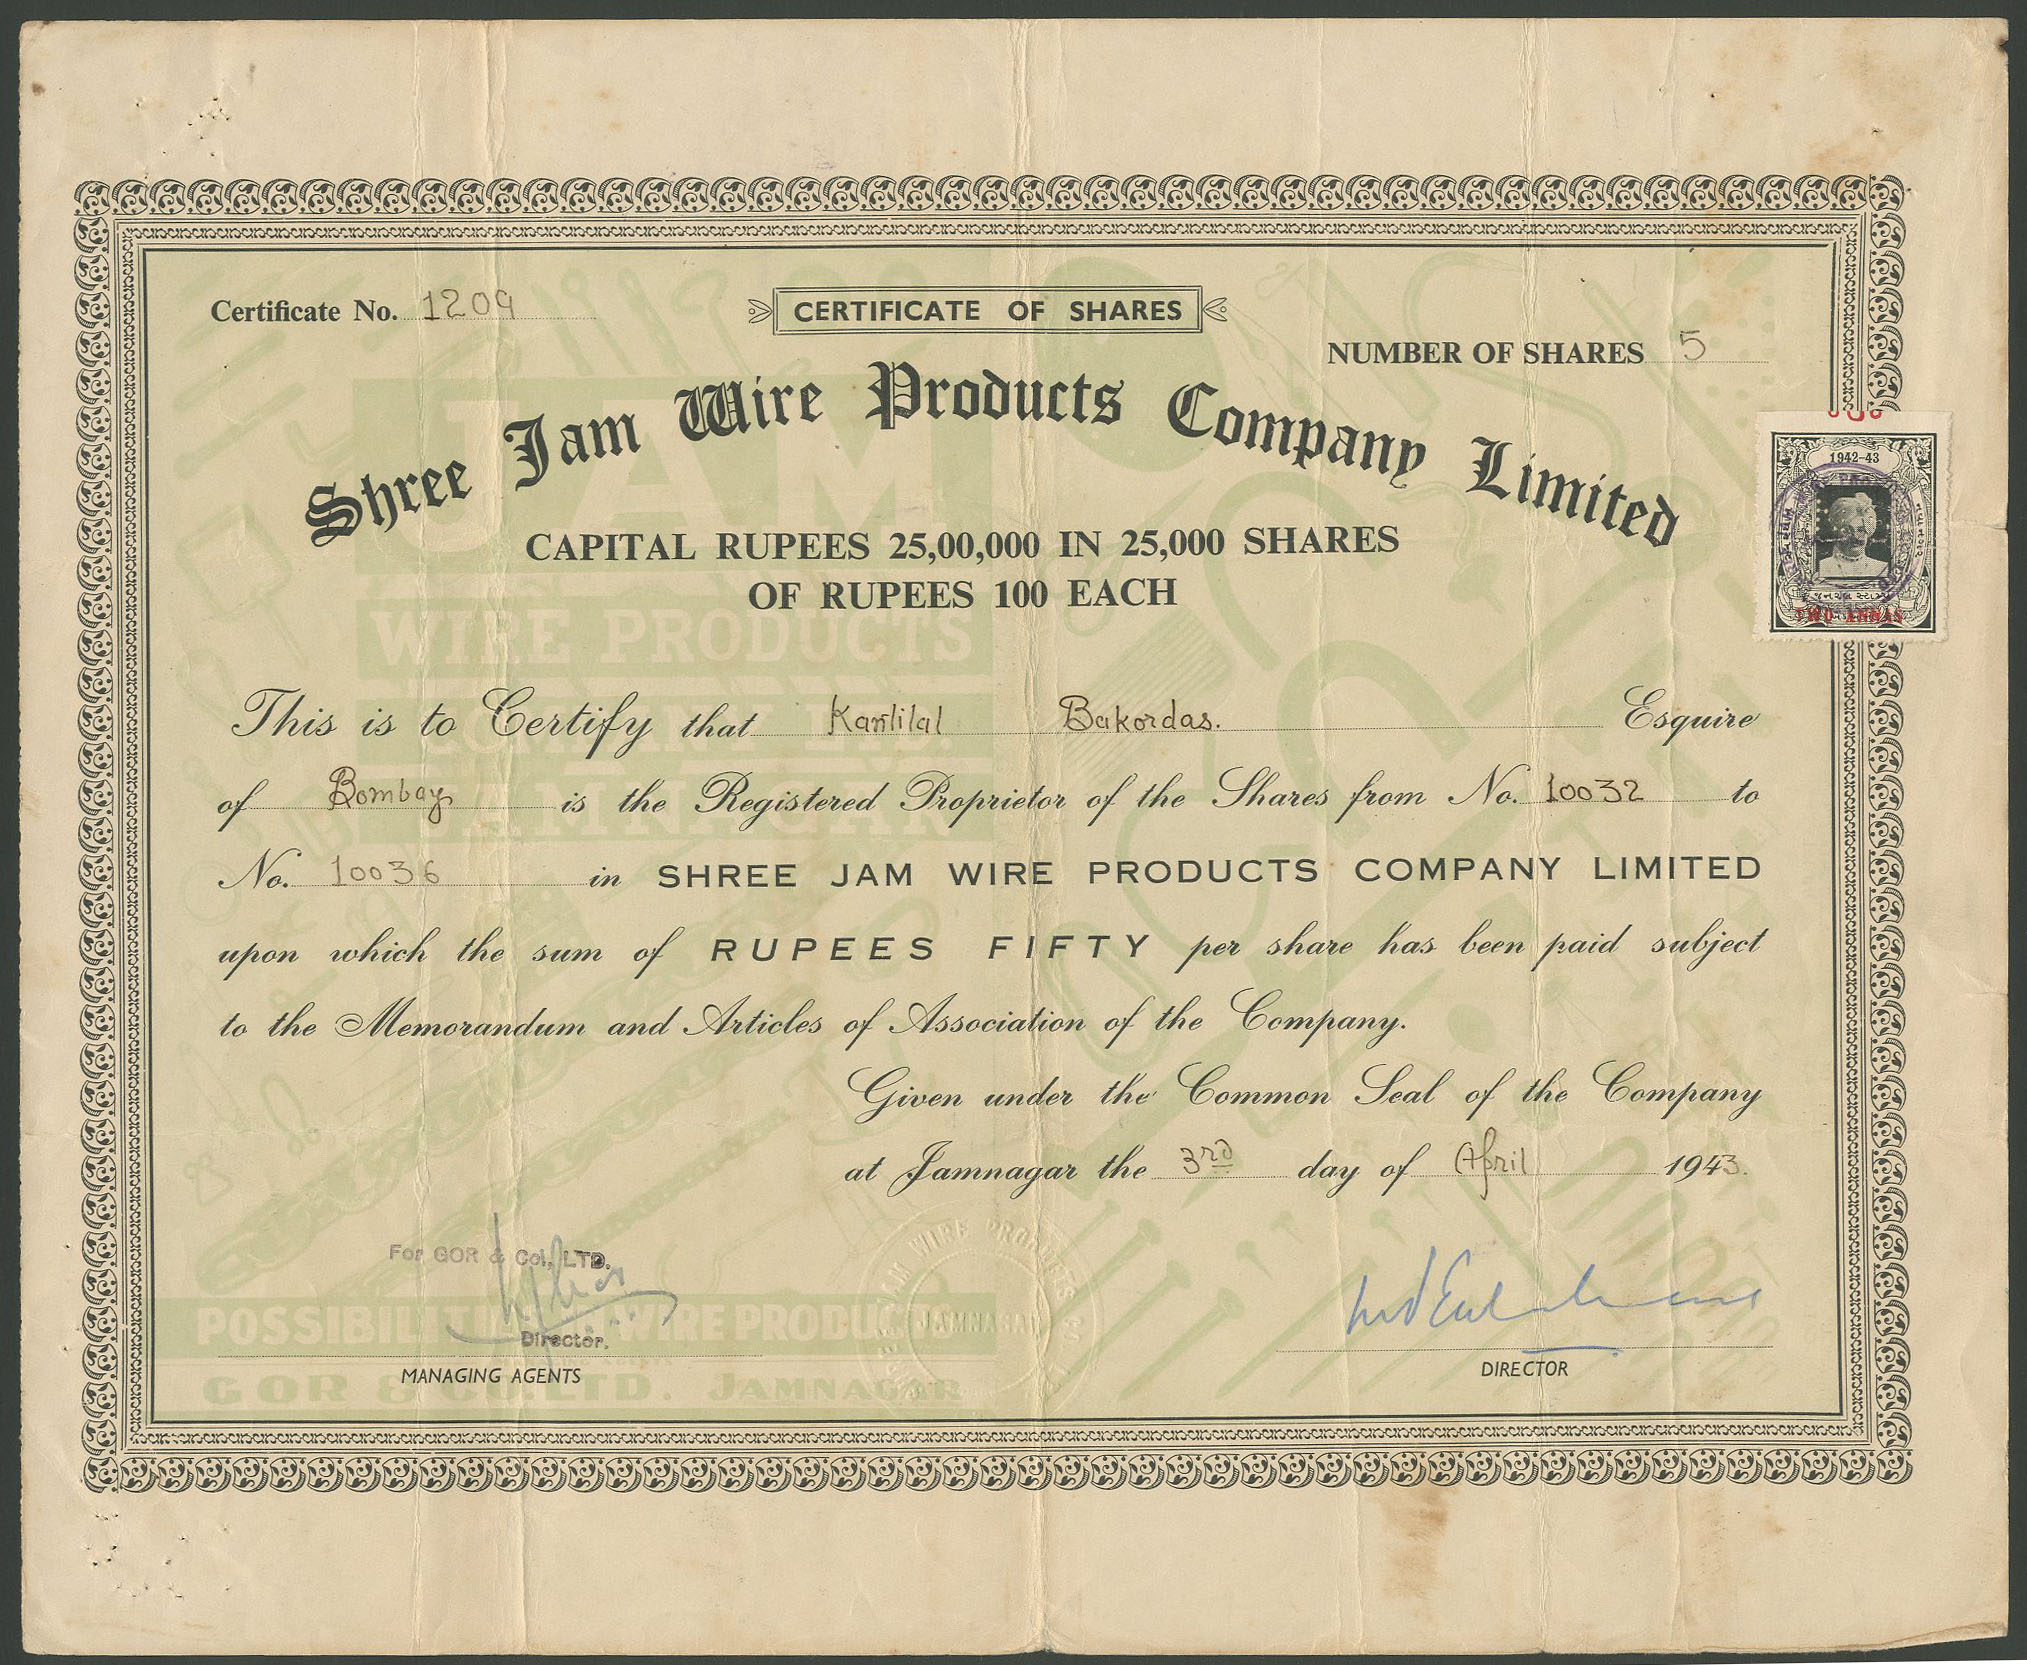 Certificate No. 1209
CERTIFICATE OF SHARES
NUMBER OF SHARES 5
Shree Jam Wire Products Company Limited
CAPITAL RUPEES 25,00,000 IN 25,000 SHARES
OF RUPEES 100 EACH
1942-43
TWO ANNAS
JAM
WIRE PRODUCTS
COMPANY LTD.
JAMNAGAR
This is to Certify that Kantilal Bakordas. Esquire
of Bombay is the Registered Proprietor of the Shares from No. 10032 to
No. 10036 in SHREE JAM WIRE PRODUCTS COMPANY LIMITED
upon which the sum of RUPEES FIFTY per share has been paid subject
to the Memorandum and Articles of Association of the Company.
Given under the Common Seal of the Company
at Jamnagar the 3rd day of April 1943.
For GOR & Co., LTD.
Director.
MANAGING AGENTS
DIRECTOR
JAM WIRE PRODUCTS CO
JAMNAGAR
POSSIBILITIES WIRE PRODUCTS
GOR & CO. LTD. JAMNAGAR